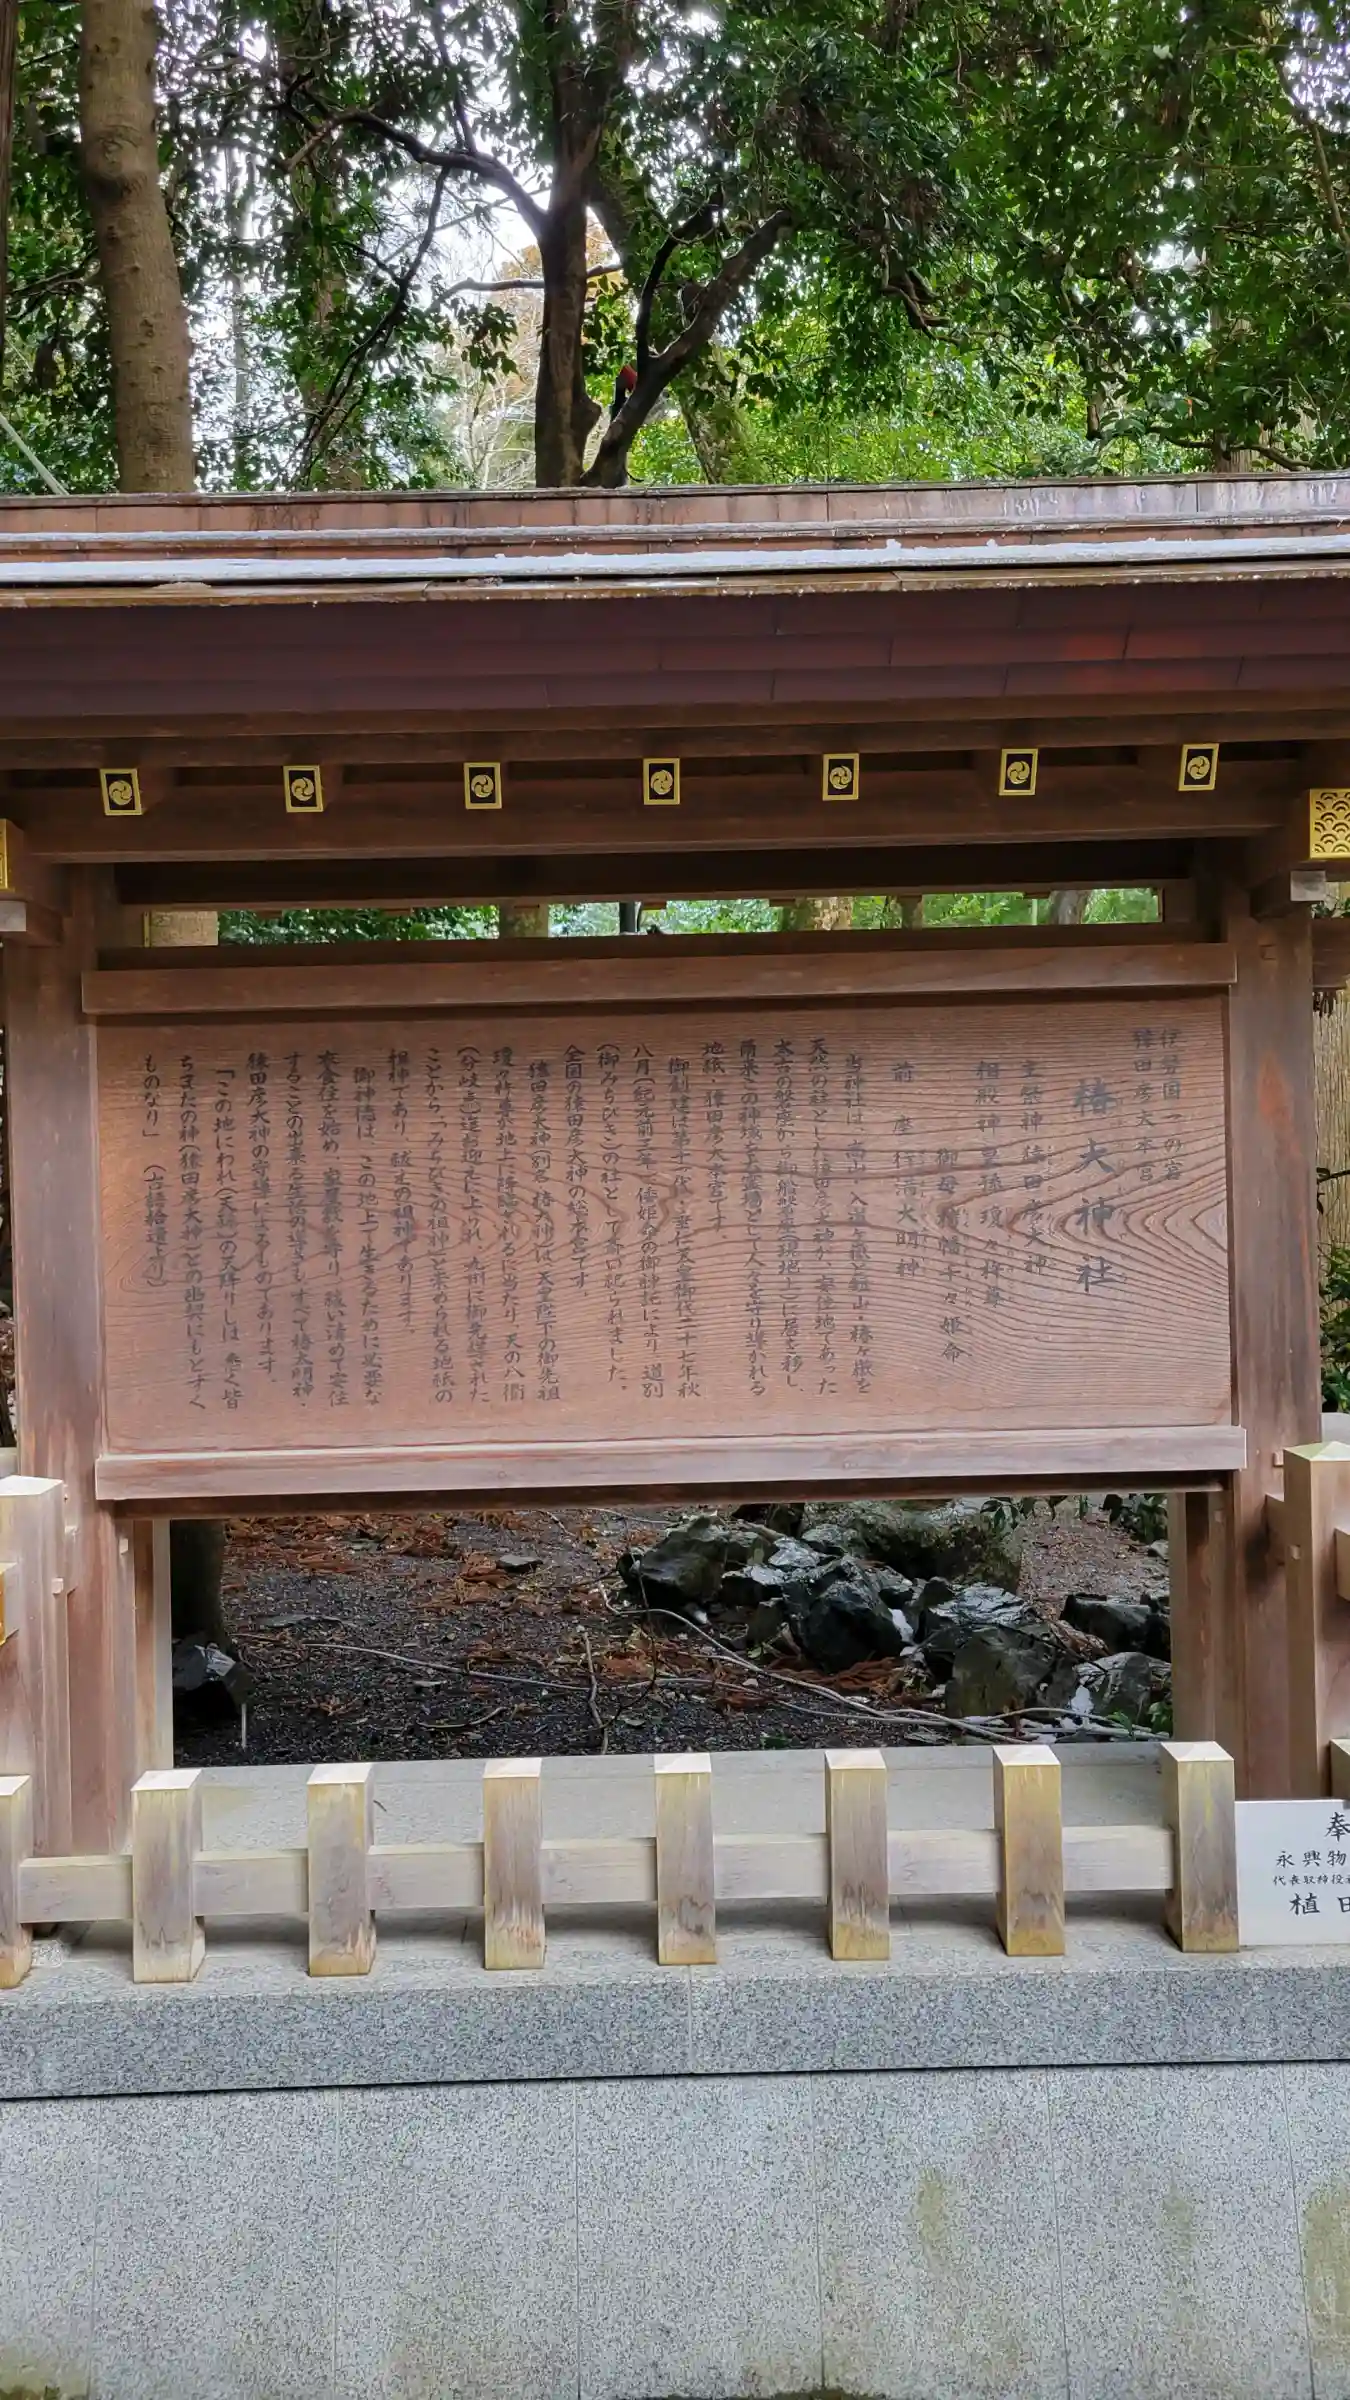 伊勢国一の宮
猿田彦大本宮
椿大神社
主祭神 猿田彦大神
相殿神 皇孫 瓊々杵尊
御母 栲幡千々姫命
前座 行満大明神
当神社は、高山・入道ヶ嶽と短山・椿ヶ嶽を
天然の社とした猿田彦大神が、安住地であった
太古の磐座から御船磐座(現地上)に居を移し、
爾来この神域を大霊場として人々を守り導かれる
地祇・猿田彦大本宮です。
御創建は第十一代・垂仁天皇御代二十七年秋
八月(紀元前三年)倭姫命の御神託により、道別
(御みちびき)の社として斎い祀られました。
全国の猿田彦大神の総本宮です。
猿田彦大神(別名 椿大神)は、天皇陛下の御先祖
瓊々杵尊が地上に降臨されるに当たり、天の八衢
(分岐点)迄お迎えに上られ、九州に御先導された
ことから「みちびきの祖神」と崇められる地祇の
祖神であり、祓えの祖神であります。
御神徳は、この地上で生きるために必要な
衣食住を始め、家屋敷を守り、祓い清めて安住
することの出来る生活の導きも、すべて椿大明神・
猿田彦大神の守導によるものであります。
「この地にわれ(天孫)の天降りしは、悉く皆
ちまたの神(猿田彦大神)との幽契にもとずく
ものなり」 (古語拾遺より)
奉
永興物
代表取締役
植田